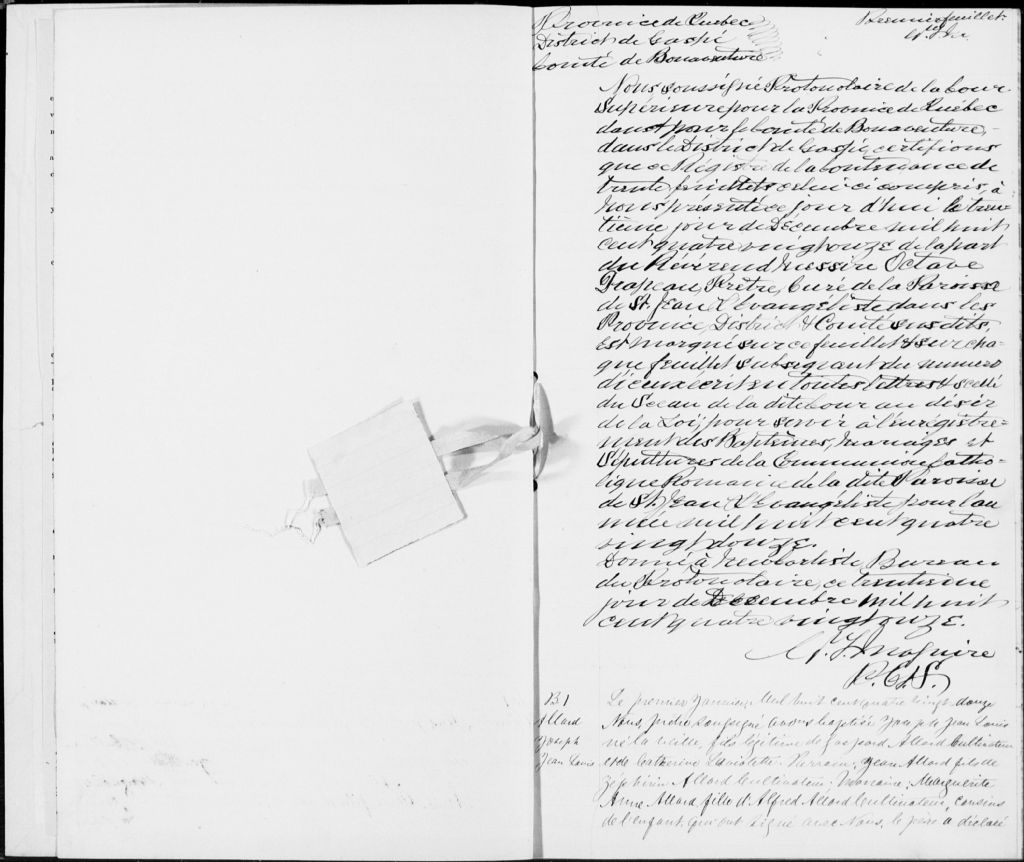 Province de Québec
District de Gaspé
Comté de Bonaventure
Premier feuillet
Nous soussigné Protonotaire de la Cour
Supérieure pour la Province de Québec
dans & pour le Comté de Bonaventure,
dans le District de Gaspé, certifions
que ce Régistre de la contenance de
trente feuillets celui-ci compris, à
nous présenté ce jour d'hui le tren-
tième jour de Décembre mil huit
cent quatre vingt onze de la part
du Révérend Messire Octave
Drapeau, Prêtre, Curé de la Paroisse
de St. Jean L'Evangéliste dans les
Province, District & Comté susdits,
est marqué sur ce feuillet & sur cha-
que feuillet subséquant du numero
d'iceux écrit en toutes lettres & scellé
du Sceau de la dite Cour au désir
de la Loi, pour servir à l'enrégistre-
ment des Baptêmes, Mariages et
Sépultures de la Communion Catho-
lique Romaine de la dite Paroisse
de St. Jean L'Evangéliste pour l'an
née mil huit cent quatre
vingt douze.
Donné à New Carlisle Bureau
du Protonotaire, ce trentième
jour de Décembre mil huit
cent quatre vingt onze.
Maguire
P.C.S.
B.1
Allard
Joseph
Jean Louis
Le premier Janvier Mil huit cent quatre vingt douze
Nous, prêtre soussigné avons baptisé Joseph Jean Louis
né la veille, fils légitime de Gaspard Allard Cultivateur
et de Catherine Parrain, Jean Allard fils de
Zéphirin Allard Cultivateur, Marraine, Marguerite
Anne Allard fille d'Alfred Allard Cultivateur, cousins
de l'enfant qui ont signé avec Nous, le père a déclaré